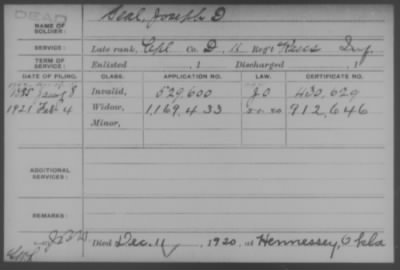 DEAD
NAME OF SOLDIER: Seal, Joseph D
SERVICE: Late rank, Cpl Co. D, 11 Reg't Kans Inf.
TERM OF SERVICE: Enlisted , 1 Discharged , 1
DATE OF FILING. CLASS. APPLICATION NO. LAW. CERTIFICATE NO.
Invalid, 529,600 430,629
1921 Feb 4 Widow, 1,169,433 912,646
Minor,
ADDITIONAL SERVICES:
REMARKS:
Died Dec. 11, 1920, at Hennessey, Okla